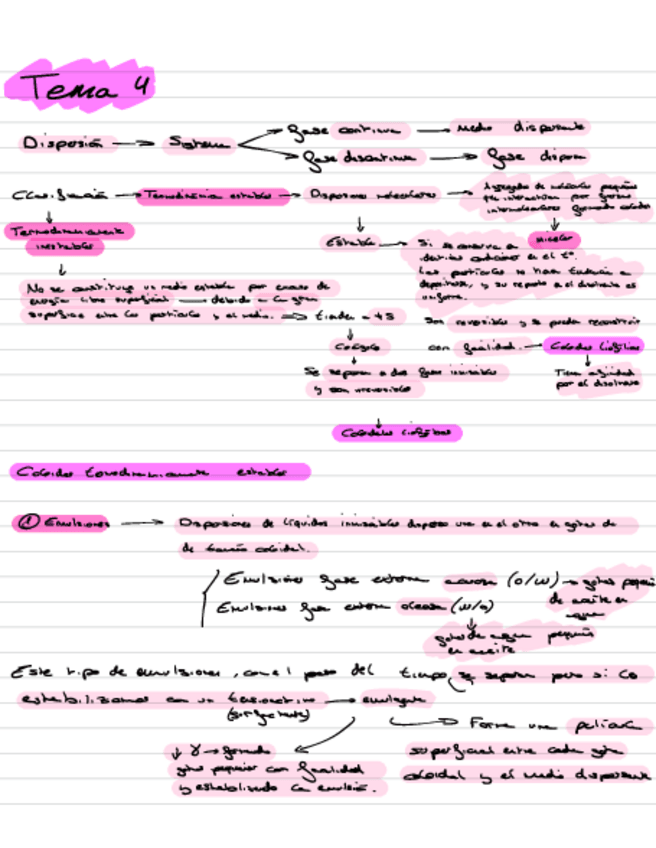 Tema 4
Dispersión → Sistema
fase continua → medio dispersante
fase discontinua → fase dispersa
Clasificación → Termodinámica estables → Dispersiones moleculares → Agregados de moléculas pequeñas
que interactúan por fuerzas
intermoleculares formando coloides
Termodinámicamente
inestables
Estable → Si se conserva a
Micelas
determinadas condiciones en el tº.
Las partículas no tienen tendencia a
depositarse, y su reparto en el disolvente es
uniforme.
No se constituye un medio estable por exceso de
energía libre superficial → debido a la gran
superficie entre las partículas y el medio. ⇒ tienden a ↓S
Son reversibles y se pueden reconstruir
con facilidad. → Coloides liofílicos
Se separan en dos fases inmiscibles
y son irreversibles
Tienen afinidad
por el disolvente
Coloides
Coloides termodinámicamente estables
① Emulsiones → Dispersiones de líquidos inmiscibles dispersos uno en el otro en gotas de
de tamaño coloidal.
Emulsiones fase externa acuosa (O/W) → gotas pequeñas
de aceite en
agua
Emulsiones fase externa oleosa (W/O)
gotas de agua pequeñas
en aceite
Este tipo de emulsiones, con el paso del tiempo se separan pero si lo
estabilizamos con un tensioactivo → emulgente
(surfactante)
→ Forma una película
superficial entre cada gota
coloidal y el medio dispersante
↓ γ → formando
gotas pequeñas con facilidad
y estabilizando la emulsión.